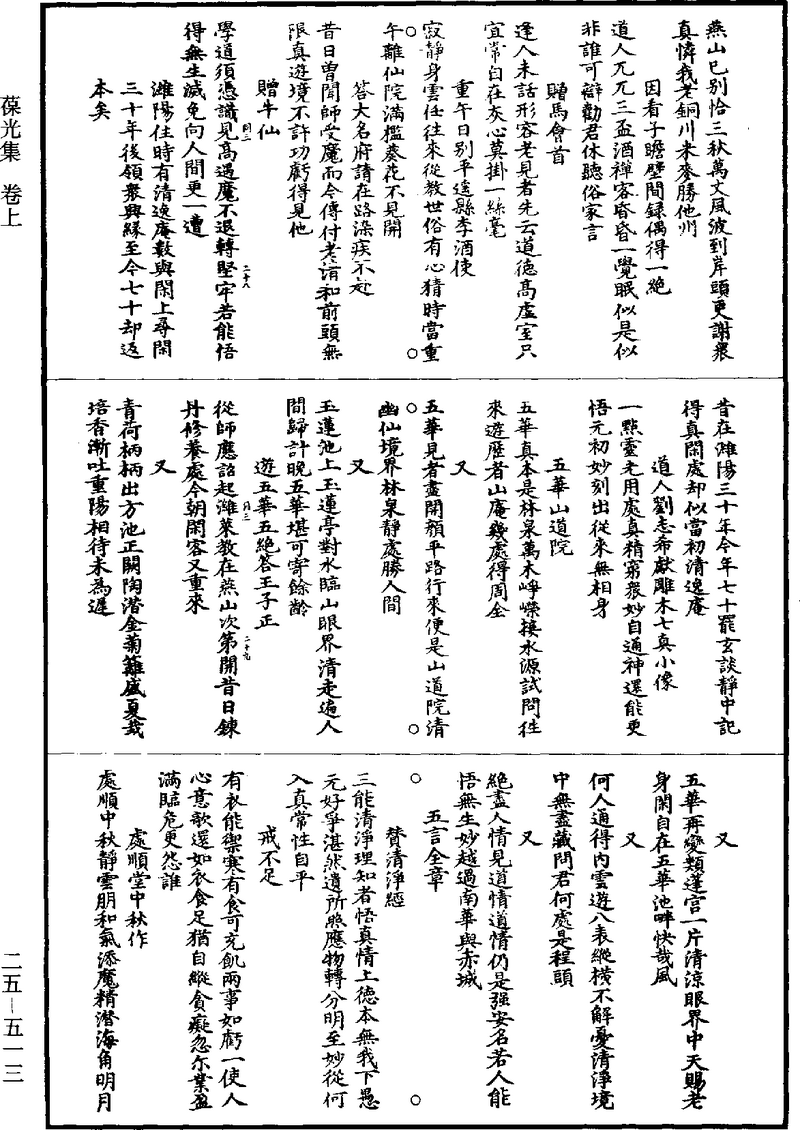 葆光集　卷上
燕山已別恰三秋萬丈風波到岸頭更謝衆
真憐我老銅川米麥勝他州
因看子瞻壁間録偶得一絶
道人兀兀三盃酒禪客昏昏一覺眠似是似
非誰可辯勸君休聽俗家言
贈馬會首
逢人未話形容老見者先云道德高虛室只
宜常自在灰心莫掛一絲毫
重午日別平遙縣李酒使
寂靜身雲任往來從教世俗有心猜時當重
午離仙院滿檻葵花不見開
荅大名府請在路染疾不赴
昔日曾聞師受魔而今傳付老清和前頭無
限真遊境不許功虧得見他
贈牛仙
學道須憑識見高遇魔不退轉堅牢若能悟
得無生滅免向人間更一遭
濰陽住時有清逸庵數與閑上尋閑
三十年後領衆興緣至今七十却返
本矣
昔在濰陽三十年今年七十罷玄談靜中記
得真閑處却似當初清逸庵
道人劉志希獻雕木七真小像
一點靈光用處真精窮衆妙自通神還能更
悟元初妙刻出從來無相身
五華山道院
五華真本是林泉萬木崢嶸接水源試問往
來遊歷者山庵幾處得周全
又
五華見者盡開顏平路行來便是山道院清
幽仙境界林泉靜處勝人間
又
玉蓮池上玉蓮亭對水臨山眼界清走遍人
間歸計晚五華堪可寄餘齡
遊五華五絶荅王子正
從師應詔起濰萊教在燕山次第開昔日鍊
丹修養處今朝閑客又重來
又
青荷柄柄出方池正闘陶潛金菊籬盛夏栽
培香漸吐重陽相待未為遲
又
五華再變類蓬宫一片清涼眼界中天賜老
身閑自在五華池畔快哉風
又
何人通得内雲遊八表縱横不解憂清淨境
中無盡藏問君何處是程頭
又
絶盡人情見道情道情仍是强安名若人能
悟無生妙越過南華與赤城
五言全章
賛清淨經
三能清淨理知者悟真情上德本無我下愚
元好爭湛然遺所照應物轉分明至妙從何
入真常性自平
戒不足
有衣能禦寒有食可充飢兩事如虧一使人
心意歌還如衣食足猶自縱貪癡忽尒業盈
滿臨危更怨誰
處順堂中秋作
處順中秋靜雲朋和氣添魔精潛海角明月
二五—五一三